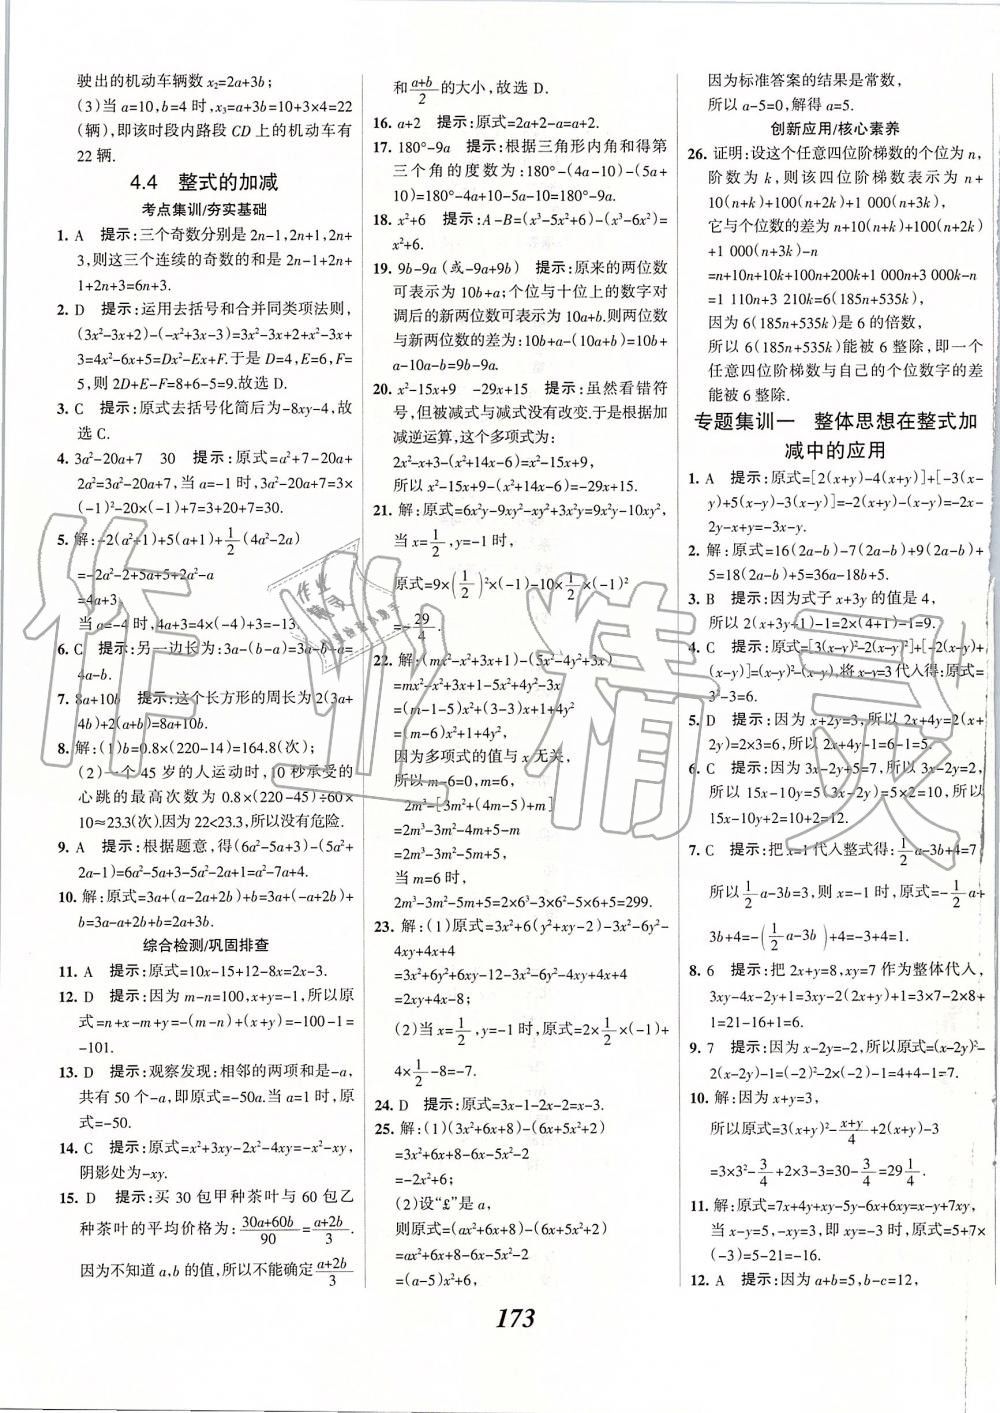 驶出的机动车辆数 x₂=2a+3b;
(3)当 a=10,b=4 时,x₃=a+3b=10+3×4=22
(辆),即该时段内路段 CD 上的机动车有
22 辆.
4.4 整式的加减
考点集训/夯实基础
1. A 提示:三个奇数分别是 2n-1,2n+1,2n+
3,则这三个连续的奇数的和是 2n-1+2n+
1+2n+3=6n+3.
2. D 提示:运用去括号和合并同类项法则,
(3x²-3x+2)-(-x²+3x-3)=3x²-3x+2+x²-3x+
3=4x²-6x+5=Dx²-Ex+F.于是 D=4,E=6,F=
5,则 2D+E-F=8+6-5=9.故选 D.
3. C 提示:原式去括号化简后为-8xy-4,故
选 C.
4. 3a²-20a+7 30 提示:原式=a²+7-20a+
2a²=3a²-20a+7,当 a=-1 时,3a²-20a+7=3×
(-1)²-20×(-1)+7=3+20+7=30.
5. 解:-2(a²+1)+5(a+1)+1/2(4a²-2a)
=-2a²-2+5a+5+2a²-a
=4a+3.
当 a=-4 时,4a+3=4×(-4)+3=-13.
6. C 提示:另一边长为:3a-(b-a)=3a-b+a=
4a-b.
7. 8a+10b 提示:这个长方形的周长为 2(3a+
4b)+2(a+b)=8a+10b.
8. 解:(1)b=0.8×(220-14)=164.8(次);
(2)一个 45 岁的人运动时,10 秒承受的
心跳的最高次数为 0.8×(220-45)÷60×
10≈23.3(次).因为 22<23.3,所以没有危险.
9. A 提示:根据题意,得(6a²-5a+3)-(5a²+
2a-1)=6a²-5a+3-5a²-2a+1=a²-7a+4.
10. 解:原式=3a+(a-2a+2b)+b=3a+(-a+2b)+
b=3a-a+2b+b=2a+3b.
综合检测/巩固排查
11. A 提示:原式=10x-15+12-8x=2x-3.
12. D 提示:因为 m-n=100,x+y=-1,所以原
式=n+x-m+y=-(m-n)+(x+y)=-100-1=
-101.
13. D 提示:观察发现:相邻的两项和是-a,
共有 50 个-a,即原式=-50a.当 a=1 时,原
式=-50.
14. C 提示:原式=x²+3xy-2x²-4xy=-x²-xy,
阴影处为-xy.
15. D 提示:买 30 包甲种茶叶与 60 包乙
种茶叶的平均价格为:(30a+60b)/90=(a+2b)/3.
因为不知道 a,b 的值,所以不能确定 (a+2b)/3
和 (a+b)/2 的大小,故选 D.
16. a+2 提示:原式=2a+2-a=a+2.
17. 180°-9a 提示:根据三角形内角和得第
三个角的度数为:180°-(4a-10)-(5a+
10)=180°-4a+10-5a-10=180°-9a.
18. x²+6 提示:A-B=(x³-5x²+6)-(x³-6x²)=
x²+6.
19. 9b-9a(或-9a+9b) 提示:原来的两位数
可表示为 10b+a;个位与十位上的数字对
调后的新两位数可表示为 10a+b.则两位数
与新两位数的差为:10b+a-(10a+b)=10b+
a-10a-b=9b-9a.
20. x²-15x+9 -29x+15 提示:虽然看错符
号,但被减式与减式没有改变.于是根据加
减逆运算,这个多项式为:
2x²-x+3-(x²+14x-6)=x²-15x+9,
所以 x²-15x+9-(x²+14x-6)=-29x+15.
21. 解:原式=6x²y-9xy²-xy²+3x²y=9x²y-10xy²,
当 x=1/2,y=-1 时,
原式=9×(1/2)²×(-1)-10×1/2×(-1)²
=-29/4.
22. 解:(mx²-x²+3x+1)-(5x²-4y²+3x)
=mx²-x²+3x+1-5x²+4y²-3x
=(m-1-5)x²+(3-3)x+1+4y²
=(m-6)x²+1+4y²,
因为多项式的值与 x 无关,
所以 m-6=0,m=6,
2m³-[3m²+(4m-5)+m]
=2m³-3m²-4m+5-m
=2m³-3m²-5m+5,
当 m=6 时,
2m³-3m²-5m+5=2×6³-3×6²-5×6+5=299.
23. 解:(1)原式=3x²+6(y²+xy-2)-3x²-6y²-
4xy+4x+4
=3x²+6y²+6xy-12-3x²-6y²-4xy+4x+4
=2xy+4x-8;
(2)当 x=1/2,y=-1 时,原式=2×1/2×(-1)+
4×1/2-8=-7.
24. D 提示:原式=3x-1-2x-2=x-3.
25. 解:(1)(3x²+6x+8)-(6x+5x²+2)
=3x²+6x+8-6x-5x²-2
=-2x²+6;
(2)设“£”是 a,
则原式=(ax²+6x+8)-(6x+5x²+2)
=ax²+6x+8-6x-5x²-2
=(a-5)x²+6,
因为标准答案的结果是常数,
所以 a-5=0,解得 a=5.
创新应用/核心素养
26. 证明:设这个任意四位阶梯数的个位为 n,
阶数为 k,则该四位阶梯数表示为 n+
10(n+k)+100(n+2k)+1 000(n+3k),
它与个位数的差为 n+10(n+k)+100(n+2k)
+1 000(n+3k)-n
=n+10n+10k+100n+200k+1 000n+3 000k-n
=1 110n+3 210k=6(185n+535k),
因为 6(185n+535k)是 6 的倍数,
所以 6(185n+535k)能被 6 整除,即一个
任意四位阶梯数与自己的个位数字的差
能被 6 整除.
专题集训一 整体思想在整式加
减中的应用
1. A 提示:原式=[2(x+y)-4(x+y)]+[-3(x-
y)+5(x-y)-3(x-y)]=-2(x+y)-(x-y)=-2x-
2y-x+y=-3x-y.
2. 解:原式=16(2a-b)-7(2a-b)+9(2a-b)
+5=18(2a-b)+5=36a-18b+5.
3. B 提示:因为式子 x+3y 的值是 4,
所以 2(x+3y)-1=2×(4+1)-1=9.
4. C 提示:原式=[3(x-y)²-2(x-y)²]+[-2(x-y)+
(x-y)]=(x-y)²-(x-y),将 x-y=3代入得:原式=
3²-3=6.
5. D 提示:因为 x+2y=3,所以 2x+4y=2(x+
2y)=2×3=6,所以 2x+4y-1=6-1=5.
6. C 提示:因为 3x-2y+5=7,所以 3x-2y=2,
所以 15x-10y=5(3x-2y)=5×2=10,所以
15x-10y+2=10+2=12.
7. C 提示:把 x=1代入整式得:1/2 a-3b+4=7,
所以 1/2 a-3b=3,则 x=-1 时,原式=-1/2 a+
3b+4=-(1/2 a-3b)+4=-3+4=1.
8. 6 提示:把 2x+y=8,xy=7 作为整体代入,
3xy-4x-2y+1=3xy-2(2x+y)+1=3×7-2×8+
1=21-16+1=6.
9. 7 提示:因为 x-2y=-2,所以原式=(x-2y)²-
2(x-2y)-1=(-2)²-2×(-2)-1=4+4-1=7.
10. 解:因为 x+y=3,
所以原式=3(x+y)²-(x+y)/4+2(x+y)-3
=3×3²-3/4+2×3-3=30-3/4=29 1/4.
11. 解:原式=7x+4y+xy-6y-6x+6xy=x-y+7xy,
当 x-y=5,-xy=3,即 xy=-3 时,原式=5+7×
(-3)=5-21=-16.
12. A 提示:因为 a+b=5,b-c=12,
173
作业精灵